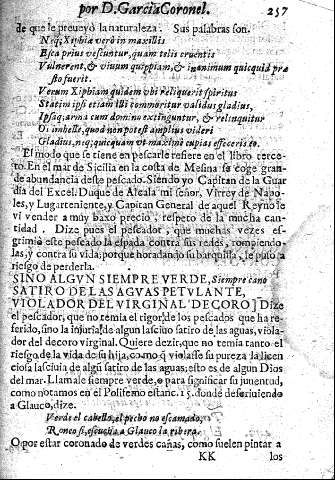 por D. Garcia Coronel. 257
de que le preueyò la naturaleza. Sus palabras son.
Neq; Xiphiæ verò in maxillis
Esca prius vescuntur, quam telis cruentis
Vulnerent, & viuum quippiam, & inanimum quicquid præ
sto fuerit.
Verum Xiphiam quidem vbi reliquerit spiritus
Statim ipsi etiam illi commoritur validus gladius,
Ipsaq; arma cum domino extinguntur, & relinquitur
Os imbelle, quod non potest amplius videri
Gladius, neq; quicquam vt maximè cupias effeceris to.
El modo que se tiene en pescarle refiere en el libro terce-
ro. En el mar de Sicilia en la costa de Mesina se coge gran-
de abundancia deste pescado. Siendo yo Capitan de la Guar
dia del Excel. Duque de Alcala mi señor, Virrey de Napo-
les, y Lugarteniente, y Capitan General de aquel Reyno le
vi vender a muy baxo precio, respeto de la mucha can-
tidad. Dize pues el pescador, que muchas vezes es-
grimiò este pescado la espada contra sus redes, rompiendo-
las, y contra su vida, porque horadando su barquilla, le puso a
riesgo de perderla.
SINO ALGVN SIEMPRE VERDE, Siempre cano
SATIRO DE LAS AGVAS PETVLANTE,
VIOLADOR DEL VIRGINAL DECORO] Dize
el pescador, que no temia el rigor de los pescados que ha re-
ferido, sino la injuria de algun lasciuo satiro de las aguas, viola-
dor del decoro virginal. Quiere dezir, que no temia tanto el
riesgo de la vida de su hija, como q̃ violasse su pureza la licen
ciosa lasciuia de algũ satiro de las aguas; esto es de algun Dios
del mar. Llamale siempre verde, o para significar su juuentud,
como notamos en el Polifemo estanc. 15. donde descriuiendo
a Glauco, dize.
Verde el cabello, el pecho no escamado,
Ronco sì, escucha a Glauco la ribera.
O por estar coronado de verdes cañas, como suelen pintar a
KK los